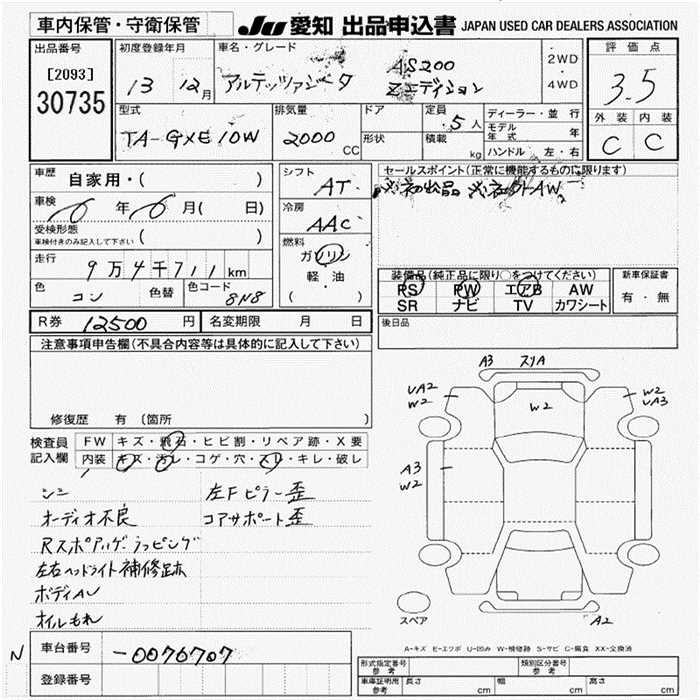 車内保管・守衛保管 JU 愛知 出品申込書 JAPAN USED CAR DEALERS ASSOCIATION
出品番号 初度登録年月 車名・グレード 2WD ・ 4WD 評価点
[2093] 13 12月 アルテッツァジータ AS200 Zエディション 3.5
30735
型式 排気量 ドア 定員 ・5人 ディーラー・並行 外装 内装
TA-GXE10W 2000 CC 形状 積載 kg モデル年式 年 C C
ハンドル 左・右
車歴 自家用・( ) シフト AT セールスポイント(正常に機能するものに限ります)
車検 6年6月( 日) 冷房 AAC
受検形態 車検付きのみ記入して下さい ( ) 燃料 ガソリン
走行 9万4千711km 軽・油 装備品(純正品に限り○をつけてください) 新車保証書
色 コン 色替 色コード 8N8 ( ) PS PW エアB AW 有・無
SR ナビ TV カワシート
R券 12500 円 名変期限 月 日 後日品
注意事項申告欄(不具合内容等は具体的に記入して下さい)
A3 スリA
UA2 W2 W2 W2 UA3
修復歴 有 (箇所
検査員記入欄 FW キズ・飛石・ヒビ割・リペア跡・X要
内装 キズ・汚レ・コゲ・穴・スレ・キレ・破レ
A3 W2
シミ 左Fピラー歪
オーディオ不良 コアサポート歪
Rスポアルゲ ラッピング
左右ヘッドライト補修跡
ボディAU
オイルもれ
スペア A2
N 車台番号 -0076707
A-キズ E-エクボ U-凹み W-補修跡 S-サビ C-腐食 XX-交換済
登録番号 形式指定番号 参考 類別区分番号 参考
車庫証明用 参考 長さ cm 幅 cm 高さ cm